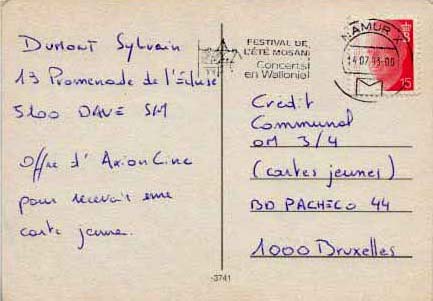 Dumont Sylvain
13 Promenade de l'Écluse
5100 DAVE SM
Offre d'Axion Cine
pour recevoir une
carte jeune.
FESTIVAL DE
L'ÉTÉ MOSAN
Concerts
en Wallonie
NAMUR X
14-07-93-00
15
Crédit
Communal
OM 3/4
(cartes jeunes)
BD PACHECO 44
1000 Bruxelles
-3741